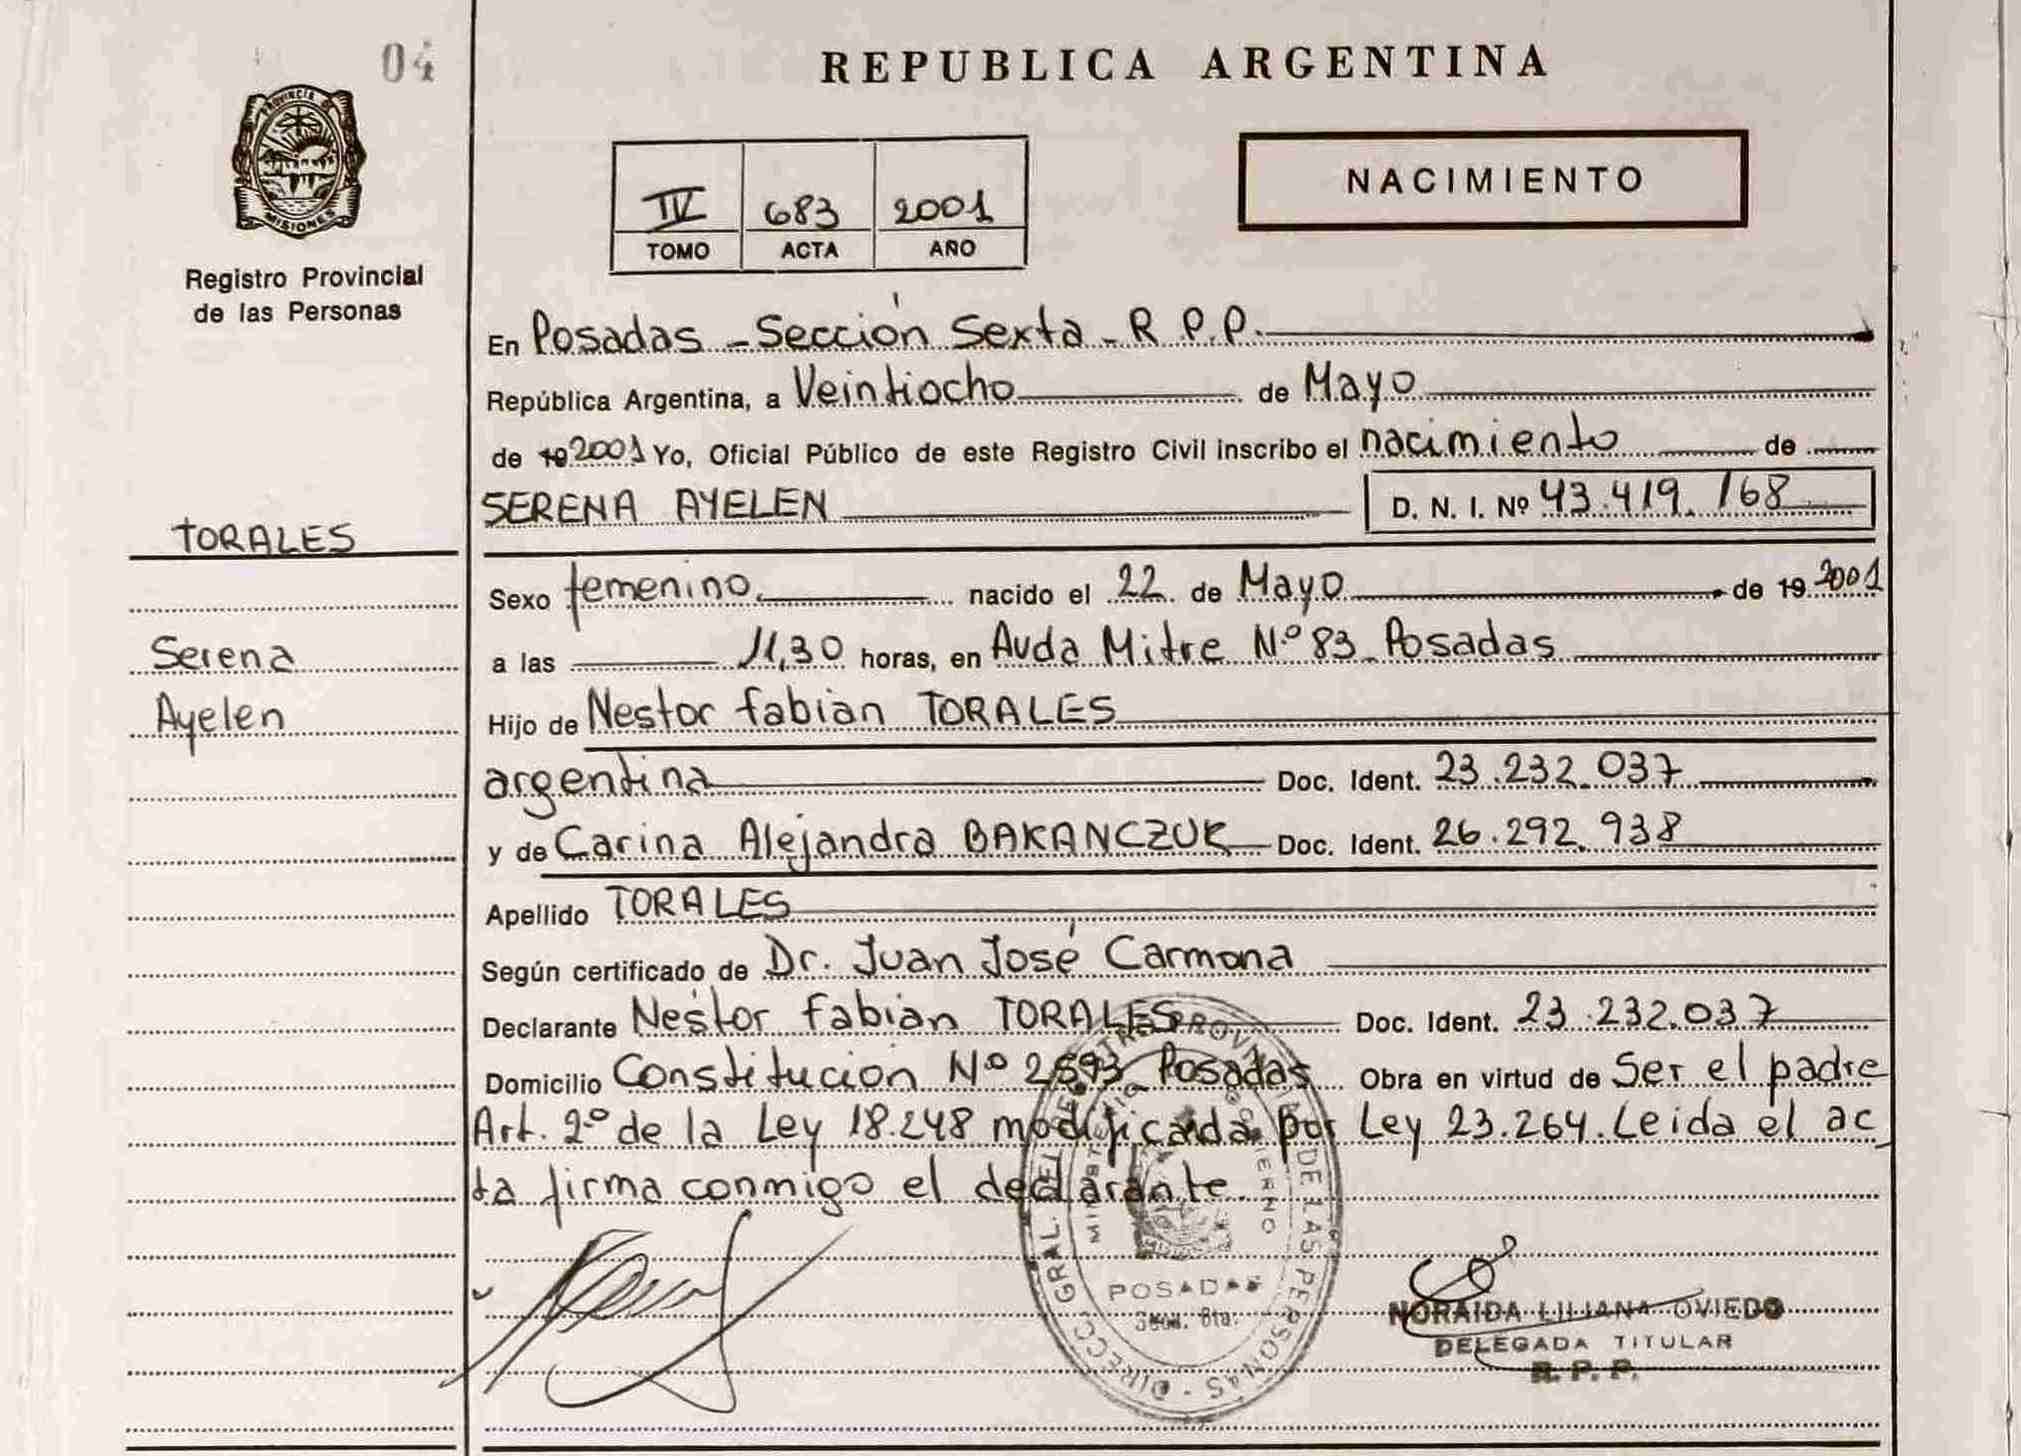 04
PROVINCIA DE
MISIONES
Registro Provincial
de las Personas
REPUBLICA ARGENTINA
IV 683 2001
TOMO ACTA AÑO
NACIMIENTO
En Posadas - Sección Sexta - R.P.P.
República Argentina, a Veintiocho de Mayo
de 19 2001 Yo, Oficial Público de este Registro Civil inscribo el nacimiento de
SERENA AYELEN D. N. I. Nº 43.419.168
TORALES
Serena
Ayelen
Sexo femenino. nacido el 22 de Mayo de 19 2001
a las 11,30 horas, en Avda Mitre Nº 83 Posadas
Hijo de Nestor fabian TORALES
argentina Doc. Ident. 23.232.037
y de Carina Alejandra BAKANCZUK Doc. Ident. 26.292.938
Apellido TORALES
Según certificado de Dr. Juan José Carmona
Declarante Nestor fabian TORALES Doc. Ident. 23.232.037
Domicilio Constitución Nº Posadas Obra en virtud de Ser el padre
Art. 2º de la Ley 18.248 modificada por Ley 23.264. Leida el ac
ta firma conmigo el declarante.
DIRECC. GRAL. DEL REGISTRO PROVINCIAL DE LAS PERSONAS
GOBIERNO
POSADAS
NORAIDA LILIANA OVIEDO
DELEGADA TITULAR
R. P. P.